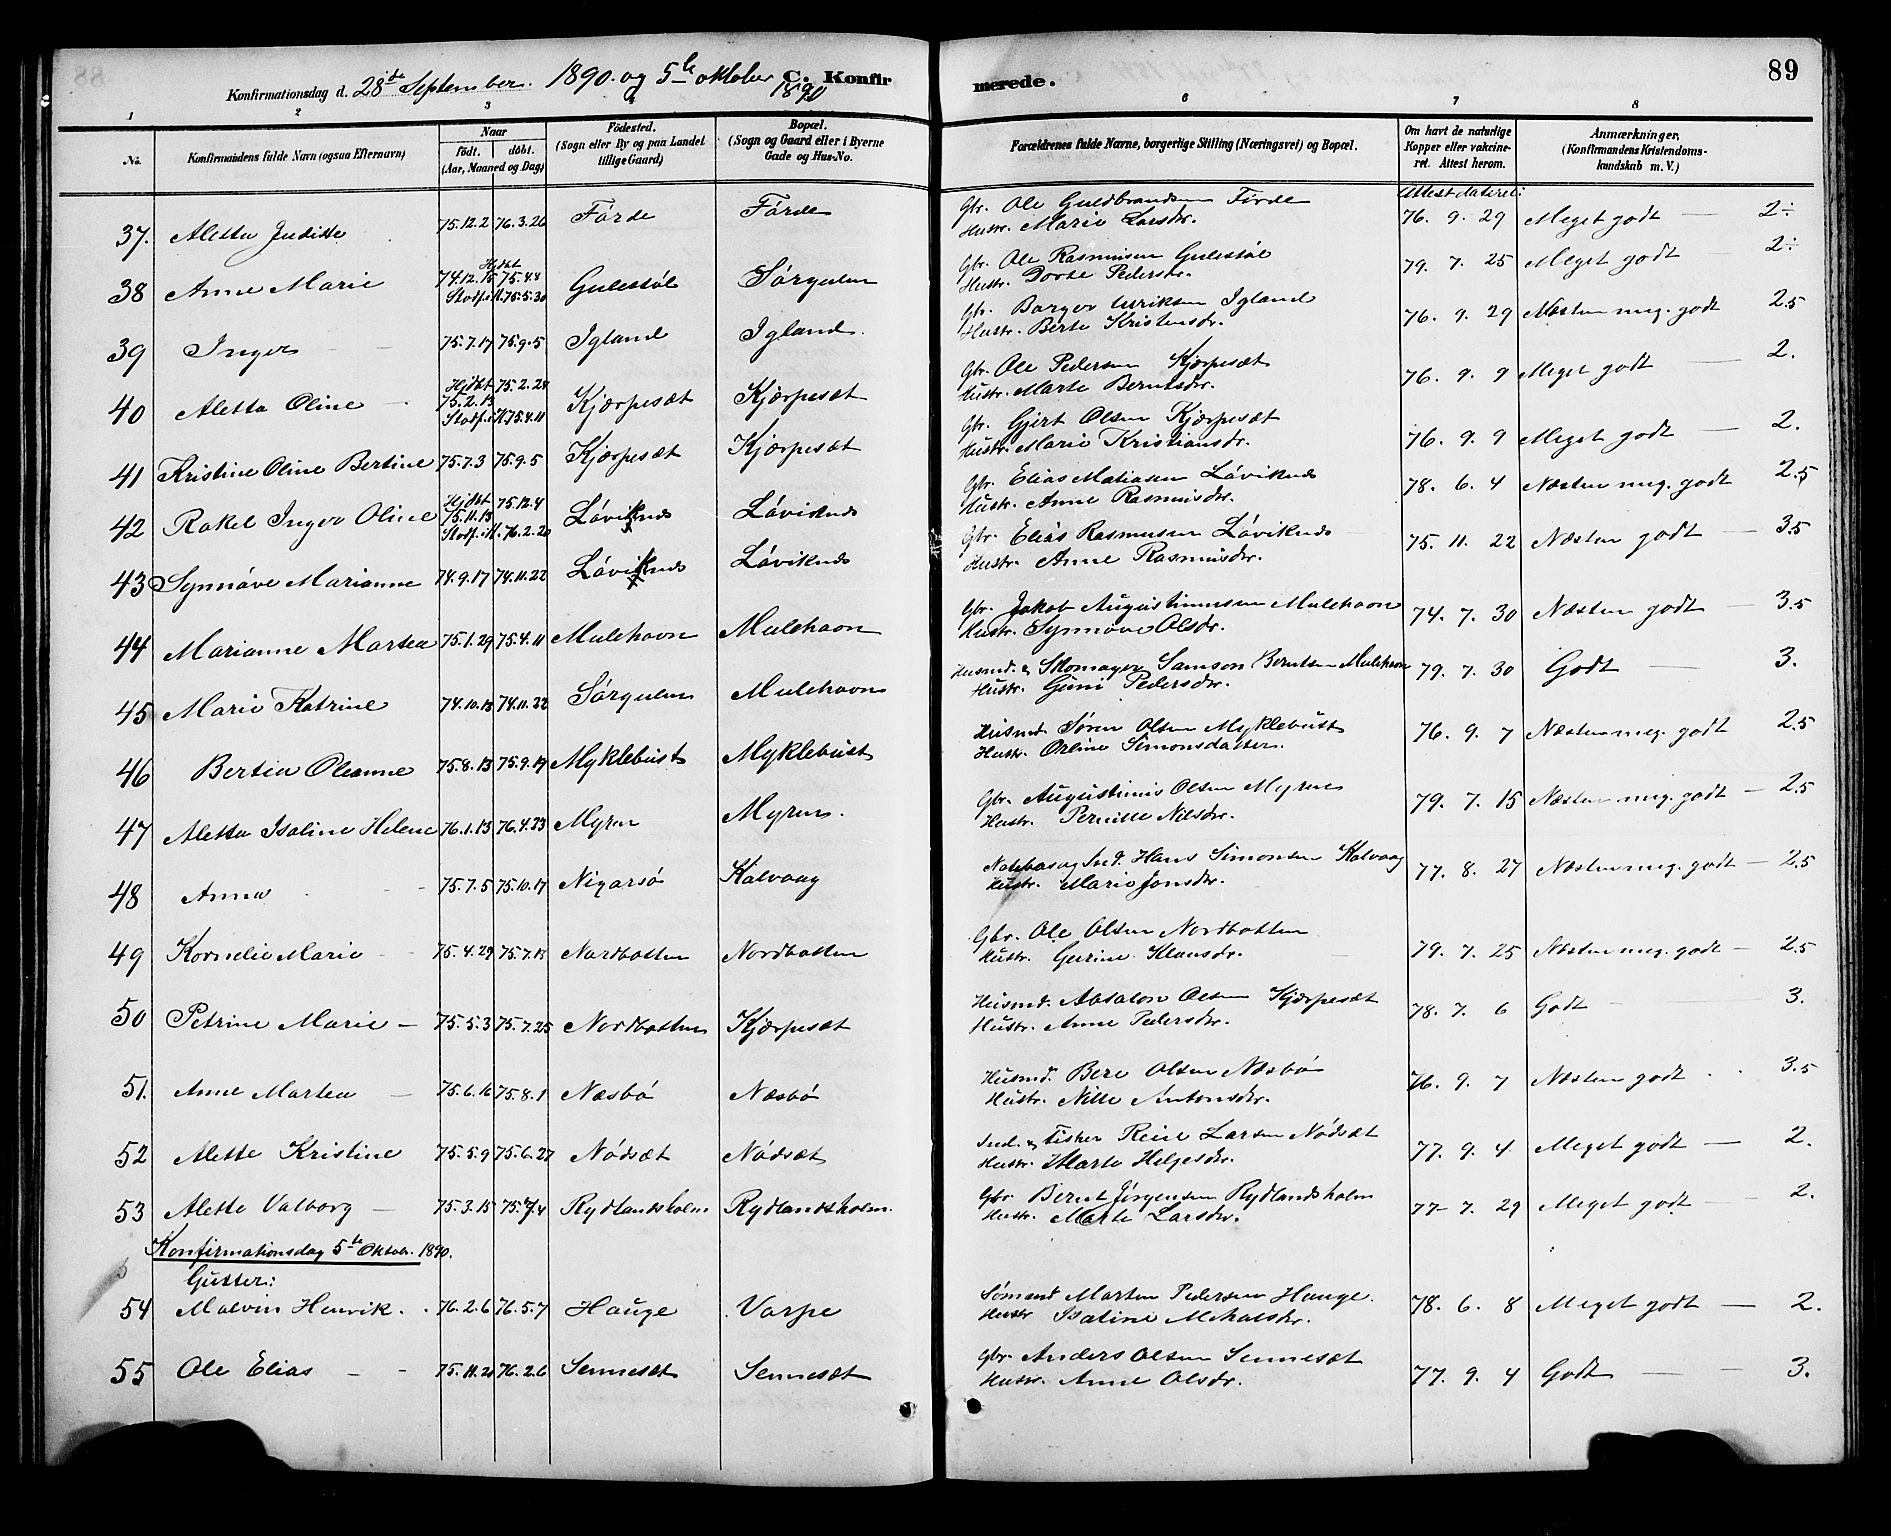 89
Konfirmationsdag d. 28de September. 1890. og 5te oktober 1890 C. Konfirmerede.
1 2 3 4 5 6 7 8
No. Konfirmandens fulde Navn (ogsaa Efternavn) Naar födt. döbt. (Aar, Maaned og Dag) Födested. (Sogn eller By og paa Landet tillige Gaard) Bopæl. (Sogn og Gaard eller i Byerne Gade og Hus-No. Forældrenes fulde Navne, borgerlige Stilling (Næringsvei) og Bopæl. Om havt de naturlige Kopper eller vakcineret. Attest herom. Anmærkninger, (Konfirmandens Kristendomskundskab m. V.)
Attest dateret:
37. Aletta Juditte 75.12.2 76.3.26 Förde Förde Gbr. Ole Guldbrandsen Förde Hustr. Marie Larsdr. 76. 9. 29 Meget godt — 2÷
38 Anne Marie 74.12.15 Hjdbt 75.4.4 Stadf. i K. 75.5.30 Gulestöl Sörgulen Gbr. Ole Rasmusen Gulestöl Hustr. Dorte Pedersdr. 79. 7. 25 Meget godt — 2÷
39 Inger 75.7.17 75.9.5 Igland Igland. Gbr. Borger Ulriksen Igland Hustr. Berte Kristensdr. 76. 9. 29 Næsten meg. godt 2.5
40 Aletta Oline 75.2.13 Hjdbt 75.2.28 Stadf. i K. 75.4.11 Kjærpesæt Kjærpesæt Gbr. Ole Pedersen Kjærpesæt Hustr. Marte Berntsdr. 76. 9. 9 Meget godt — 2.
41 Kristine Oline Bertine 75.7.3 75.9.5 Kjærpesæt Kjærpesæt Gbr. Gjert Olsen Kjærpesæt Hustr. Marie Kristiansdr. 76. 9. 9 Meget godt — 2.
42 Rakel Inger Oline 75.11.13 Hjdbt 75.12.4 Stadf. i K. 76.2.20 Löviknes Löviknes Gbr. Elias Matiasen Löviknes Hustr. Anne Rasmusdr. 78. 6. 4 Næsten meg. godt 2.5
43 Synnöve Marianne 74.9.17 74.11.22 Löviknes Löviknes Gbr. Elias Rasmusen Löviknes Hustr. Anne Rasmusdr. 75. 11. 22 Næsten godt — 3.5
44 Marianne Martea 75.1.29 75.4.11 Mulehavn Mulehavn Gbr. Jakob Augustinusen Mulehavn Hustr. Synnöve Olsdr. 74. 7. 30 Næsten godt — 3.5
45 Marie Katrine 74.10.13 74.11.22 Sörgulen Mulehavn Husmd. & Skomager Samson Berntsen Mulehavn Hustr. Guni Pedersdr. 79. 7. 30 Godt — 3.
46 Bertea Oleanne 75.8.13 75.9.19 Myklebust Myklebust Husmd. Sören Olsen Myklebust Hustr. Orline Simonsdatter. 76. 9. 7 Næsten meg. godt 2.5
47 Aletta Isaline Helene 76.1.13 76.4.23 Myren Myren. Gbr. Augustinus Olsen Myren Hustr. Pernille Nilsdr. 79. 7. 15 Næsten meg. godt — 2.5
48 Anna 75.7.5 75.10.17 Nigarsö Kalvaag Ind. Hans Simonsen Kalvaag Hustr. Marie Jonsdr. 77. 8. 27 Næsten meg. godt — 2.5
49 Kornelie Marie 75.4.29 75.7.11 Nordbotten Nordbotten Gbr. Ole Olsen Nordbotten Hustr. Gurine Klausdr. 79. 7. 25 Næsten meg. godt — 2.5
50 Petrine Marie — 75.5.3 75.7.25 Nordbotten Kjærpesæt Husmd. Absalon Olsen Kjærpesæt Hustr. Anne Pedersdr. 78. 7. 6 Godt 3.
51. Anne Martea — 75.6.16 75.8.1 Næsbö Næsbö Husmd. Bere Olsen Næsbö Hustr. Nille Antonsdr. 76. 9. 7 Næsten godt 3.5
52 Alette Kristine 75.5.9 75.6.27 Nödsæt Nödsæt Ind. & Fisker Rein Larsen Nödsæt Hustr. Marte Helgesdr. 77. 9. 4 Meget godt — 2.
53 Alette Valborg — 75.3.15 75.7.4 Rydlandsholm Rydlandsholm. Gbr Bernt Jørgensen Rydlandsholm Hustr. Marte Larsdr. 77 7. 29 Meget godt 2.
Konfirmationsdag 5te Oktobr. 1890.
Gutter:
54 Malvin Henrik. 76.2.6 76.5.7 Hauge Varpe Sömand Marten Pedersen Hauge. Hustr Isaline Mikalsdr. 78. 6. 8 Meget godt — 2.
55 Ole Elias — 75.11.21 76.2.6 Sennesæt Sennesæt Gbr. Anders Olsen Sennesæt Hustr. Anne Olsdr. 77. 9. 4 Godt — 3.